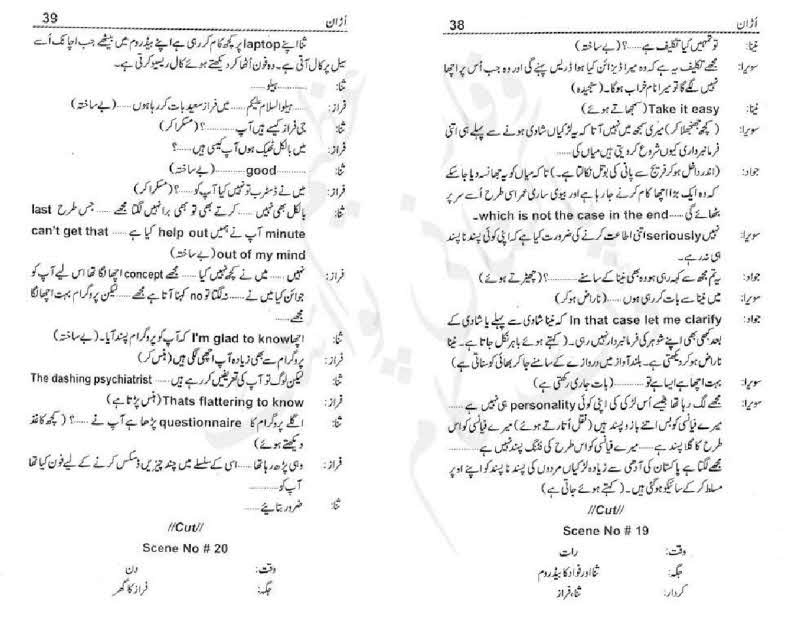 38
اُڑان
نینا: تو تمہیں کیا تکلیف ہے......؟ (بے ساختہ)
سویرا: مجھے تکلیف یہ ہے کہ وہ میرا ڈیزائن کیا ہوا ڈریس پہنے گی اور وہ جب اُس پر اچھا
نہیں لگے گا تو میرا نام خراب ہوگا۔ (سنجیدہ)
نینا: Take it easy (سمجھاتے ہوئے)
سویرا: (کچھ جھنجھلا کر) میری سمجھ میں نہیں آتا کہ یہ لڑکیاں شادی ہونے سے پہلے ہی اتنی
فرمانبرداری کیوں شروع کر دیتی ہیں میاں کی......
جواد: (اندر داخل ہو کر فریج سے پانی کی بوتل نکالتا ہے۔) تا کہ میاں کو یہ جھانسہ دیا جا سکے
کہ وہ ایک بڑا اچھا کام کرنے جا رہا ہے اور بیوی ساری عمر اسی طرح اُسے سر پر
بٹھائے گی...... which is not the case in the end۔
سویرا: نہیں seriously اتنی اطاعت کرنے کی ضرورت کیا ہے کہ اپنی کوئی پسند نا پسند
ہی نہ رہے۔
جواد: یہ تم مجھ سے کہہ رہی ہو وہ بھی نینا کے سامنے......؟ (چھیڑتے ہوئے)
سویرا: میں نینا سے بات کر رہی ہوں...... (ناراض ہو کر)
جواد: In that case let me clarify کہ نینا شادی سے پہلے یا شادی کے
بعد کبھی بھی اپنے شوہر کی فرمانبردار نہیں رہی۔ (کہتے ہوئے باہر نکل جاتا ہے۔ نینا
ناراض ہو کر دیکھتی ہے۔ بلند آواز میں دروازے کے سامنے جا کر بھائی کو سناتی ہے)
سویرا: بہت اچھا ہے ایسا ہے تو...... (بات جاری رکھتی ہے)
سویرا: مجھے لگ رہا تھا جیسے اُس لڑکی کی اپنی کوئی personality ہی نہیں ہے......
میرے فیانسی کو بس اتنے بازو پسند ہیں (نقل اُتارتے ہوئے) میرے فیانسی کو اس
طرح کا گلا پسند ہے...... میرے فیانسی کو اس طرح کی فٹنگ پسند نہیں ہے......
مجھے لگتا ہے پاکستان کی آدھی سے زیادہ لڑکیاں مردوں کی پسند نا پسند کو اپنے اوپر
مسلط کر کے سائیکو ہو گئی ہیں۔ (کہتے ہوئے جاتی ہے)
//Cut//
Scene No # 19
وقت: رات
جگہ: ثنا اور فواد کا بیڈ روم
کردار: ثنا، فراز
39
اُڑان
ثنا اپنے laptop پر کچھ کام کر رہی ہے اپنے بیڈ روم میں بیٹھے جب اچانک اُسے
سیل پر کال آتی ہے۔ وہ فون اُٹھا کر دیکھتے ہوئے کال ریسیو کرتی ہے۔
ثنا: ہیلو......
فراز: ہیلو السلام علیکم...... میں فراز سعید بات کر رہا ہوں...... (بے ساختہ)
ثنا: جی فراز کیسے ہیں آپ......؟ (مسکرا کر)
فراز: میں بالکل ٹھیک ہوں آپ کیسی ہیں......؟
ثنا: good...... (بے ساختہ)
فراز: میں نے ڈسٹرب تو نہیں کیا آپ کو......؟ (مسکرا کر)
ثنا: بالکل بھی نہیں...... کرتے بھی تو بھی برا نہیں لگتا مجھے...... جس طرح last
minute آپ نے ہمیں help out کیا ہے...... can't get that
out of my mind (بے ساختہ)
فراز: نہیں...... میں نے کچھ نہیں کیا...... مجھے concept اچھا لگا تھا اس لیے آپ کو
جوائن کیا میں نے...... نہ لگتا تو no کہنا آتا ہے مجھے...... لیکن پروگرام بہت اچھا لگا
مجھے......
ثنا: اچھا I'm glad to know کہ آپ کو پروگرام پسند آیا۔ (بے ساختہ)
فراز: پروگرام سے بھی زیادہ آپ اچھی لگی ہیں (ہنس کر)
ثنا: لیکن لوگ تو آپ کی تعریفیں کر رہے ہیں...... The dashing psychiatrist
فراز: Thats flattering to know (ہنس پڑتا ہے)
ثنا: اگلے پروگرام کا questionnaire پڑھا ہے آپ نے......؟ (کچھ کاغذ
دیکھتے ہوئے)
فراز: وہی پڑھ رہا تھا...... اسی کے سلسلے میں چند چیزیں ڈسکس کرنے کے لیے فون کیا تھا
آپ کو......
ثنا: ضرور بتائیے......
//Cut//
Scene No # 20
وقت: دن
جگہ: فراز کا گھر